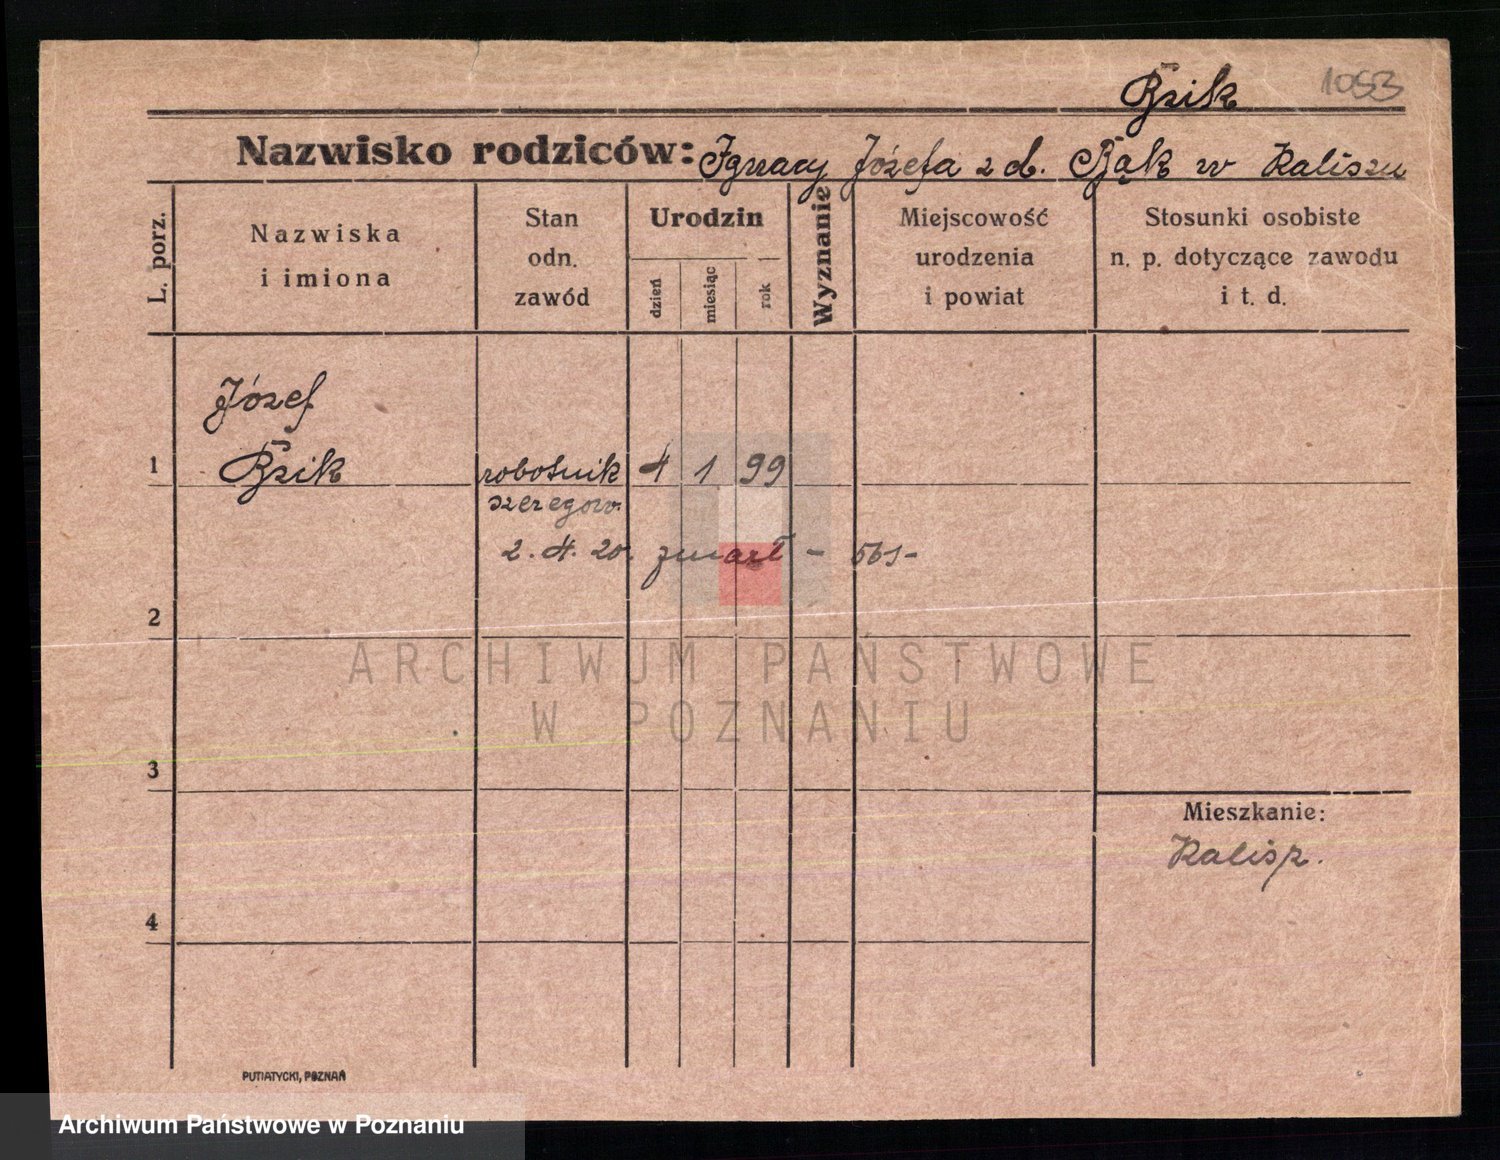 Bzik 1053
Nazwisko rodziców: Ignacy Józefa z d. Bąk w Kaliszu
L. porz.
Nazwiska
i imiona
Stan
odn.
zawód
Urodzin
dzień
miesiąc
rok
Wyznanie
Miejscowość
urodzenia
i powiat
Stosunki osobiste
n. p. dotyczące zawodu
i t. d.
Józef
1 Bzik robotnik 4 1 99
szeregow.
2. 4. 20. zmarł - 561-
2
ARCHIWUM PAŃSTWOWE
W POZNANIU
3
Mieszkanie:
Kalisz.
4
PUTIATYCKI, POZNAŃ
Archiwum Państwowe w Poznaniu